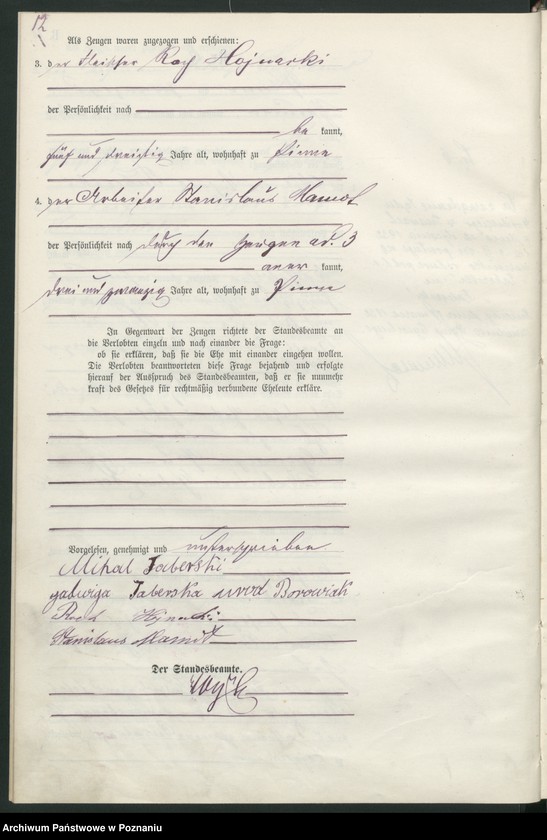 12
Als Zeugen waren zugezogen und erschienen:
3. der Roch Hojnacki
der Persönlichkeit nach
be kannt,
fünf und dreißig Jahre alt, wohnhaft zu
4. der Arbeiter Stanislaus
der Persönlichkeit nach durch den Zeugen ad. 3
aner kannt,
drei und zwanzig Jahre alt, wohnhaft zu
In Gegenwart der Zeugen richtete der Standesbeamte an
die Verlobten einzeln und nach einander die Frage:
ob sie erklären, daß sie die Ehe mit einander eingehen wollen.
Die Verlobten beantworteten diese Frage bejahend und erfolgte
hierauf der Ausspruch des Standesbeamten, daß er sie nunmehr
kraft des Gesetzes für rechtmäßig verbundene Eheleute erkläre.
Vorgelesen, genehmigt und unterschrieben
Mihal Taberski
Taberska urod Borowiak
Roch
Stanislaus
Der Standesbeamte.
Archiwum Państwowe w Poznaniu